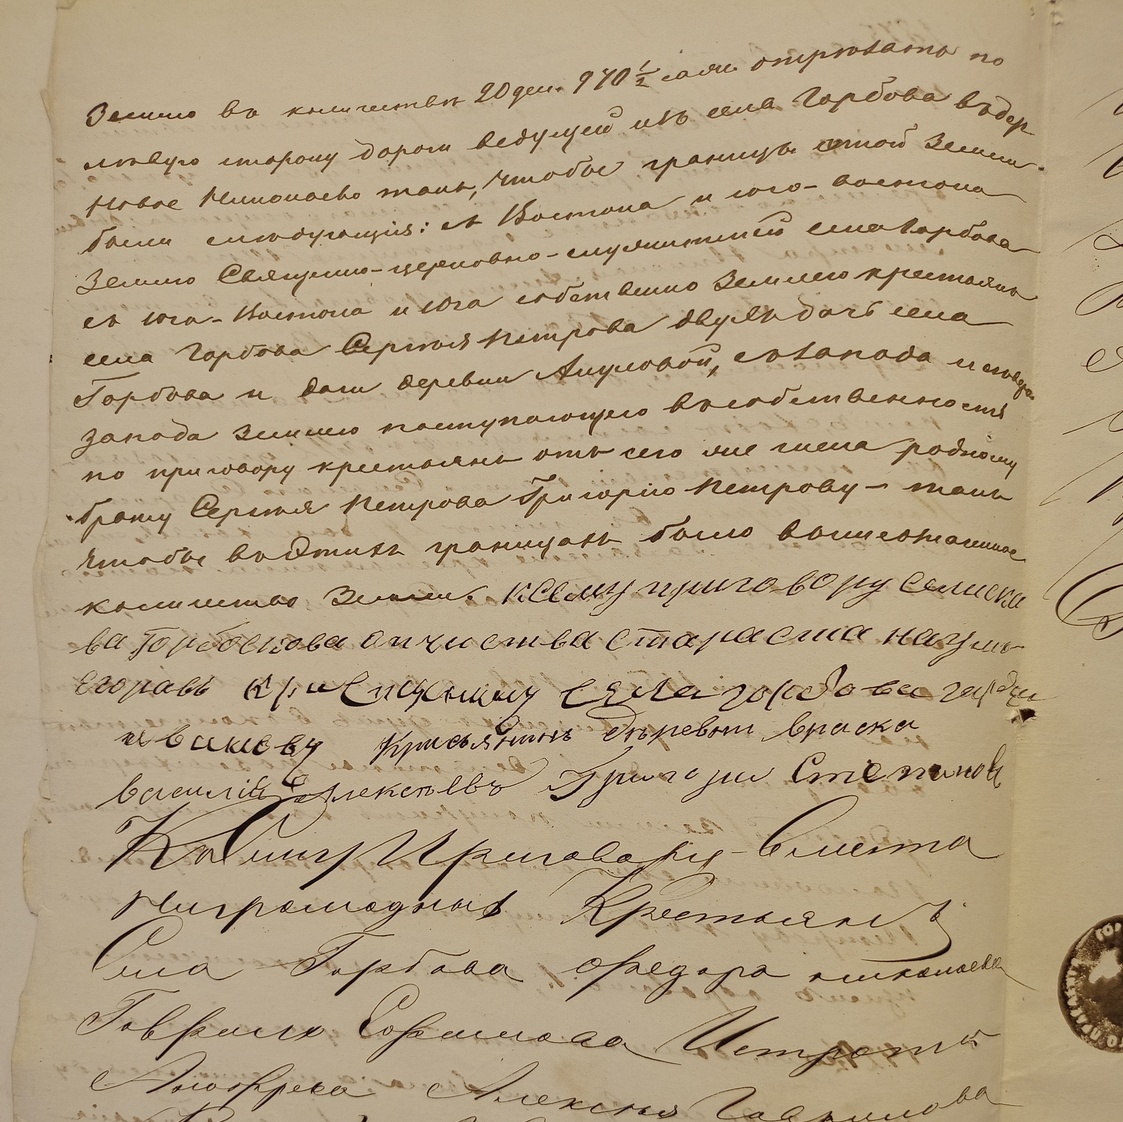 Землю въ количествѣ 20 дес. 970 1/2 саж. отрѣзать по
лѣвую сторону дороги ведущей изъ села Горбова въ дер
Новое Николаево такъ, чтобы границы этой земли
были слѣдующія: съ Востока и юго-востока
Землею Священно-церковно-служителей села Горбова
съ юго-Востока и Юга собственно Землею крестьянъ
села Горбова Сергѣя Петрова двухъ дачъ села
Горбова и дачи деревни Акуловой, съ запада и сѣверо
запада Землею поступающею въ собственность
по приговору крестьянъ отъ сего же числа родному
брату Сергѣя Петрова Григорію Петрову - такъ
чтобы въ этихъ границахъ было вышеозначенное
количество Земли. Ксему приговору селиска
ва Горбоскова опчиства стараста
Егоравъ села горбова
иванову Крисьянинъ деревни
василій Алексѣевъ Григори Степановъ
Къ Симу Приговору вместа
Ниграмадныхъ Крестьянъ
Села Горбова Федора николаева
Гаврила Ефимова
Алексѣя Гаврилова